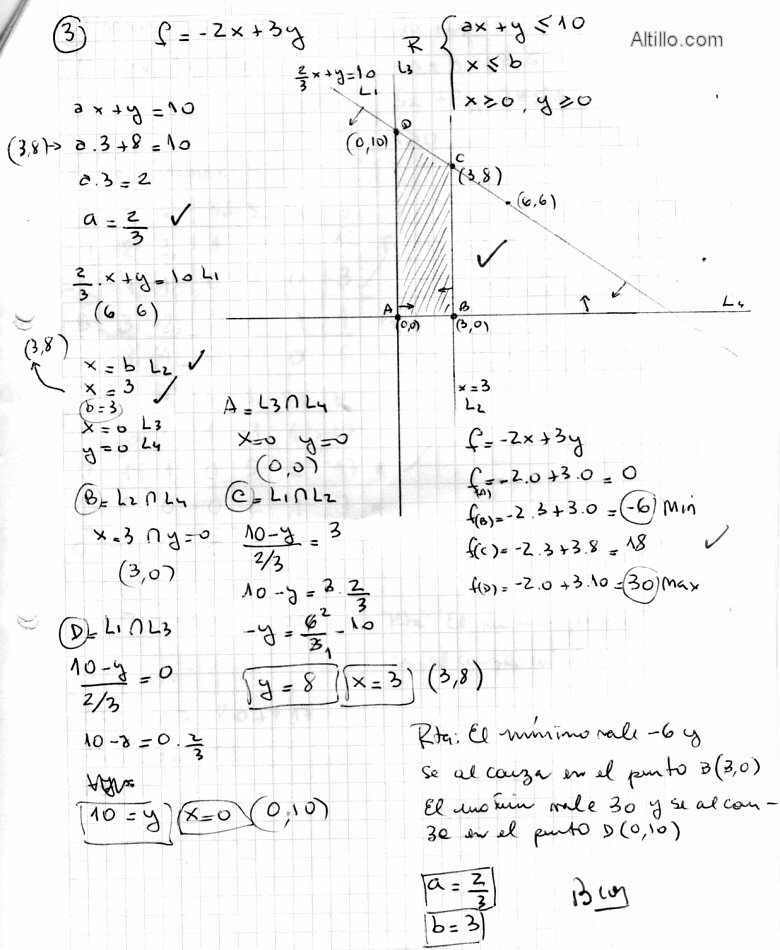 3) f = -2x + 3y
R { ax + y ≤ 10
x ≤ b
x ≥ 0, y ≥ 0
Altillo.com
2/3 x + y = 10
L1
L3
D
(0,10)
C
(3,8)
(6,6)
A
(0,0)
B
(3,0)
L4
x = 3
L2
ax + y = 10
(3,8)→ a.3 + 8 = 10
a.3 = 2
a = 2/3 ✓
2/3 . x + y = 10 L1
(6 6)
(3,8)
x = b L2 ✓
x = 3 ✓
b = 3
x = 0 L3
y = 0 L4
A = L3 ∩ L4
x=0 y=0
(0,0)
B = L2 ∩ L4
x = 3 ∩ y = 0
(3,0)
C = L1 ∩ L2
10-y / 2/3 = 3
10 - y = 3 . 2/3
-y = 6 2 / 3 1 - 10
y = 8 x = 3 (3,8)
D = L1 ∩ L3
10-y / 2/3 = 0
10 - y = 0 . 2/3
10 = y x = 0 (0,10)
f = -2x + 3y
f(A) = -2.0 + 3.0 = 0
f(B) = -2.3 + 3.0 = -6 Min
f(C) = -2.3 + 3.8 = 18 ✓
f(D) = -2.0 + 3.10 = 30 Max
Rta: El mínimo vale -6 y
se alcanza en el punto B(3,0)
El vale 30 y se alcan-
za en el punto D(0,10)
a = 2/3
b = 3